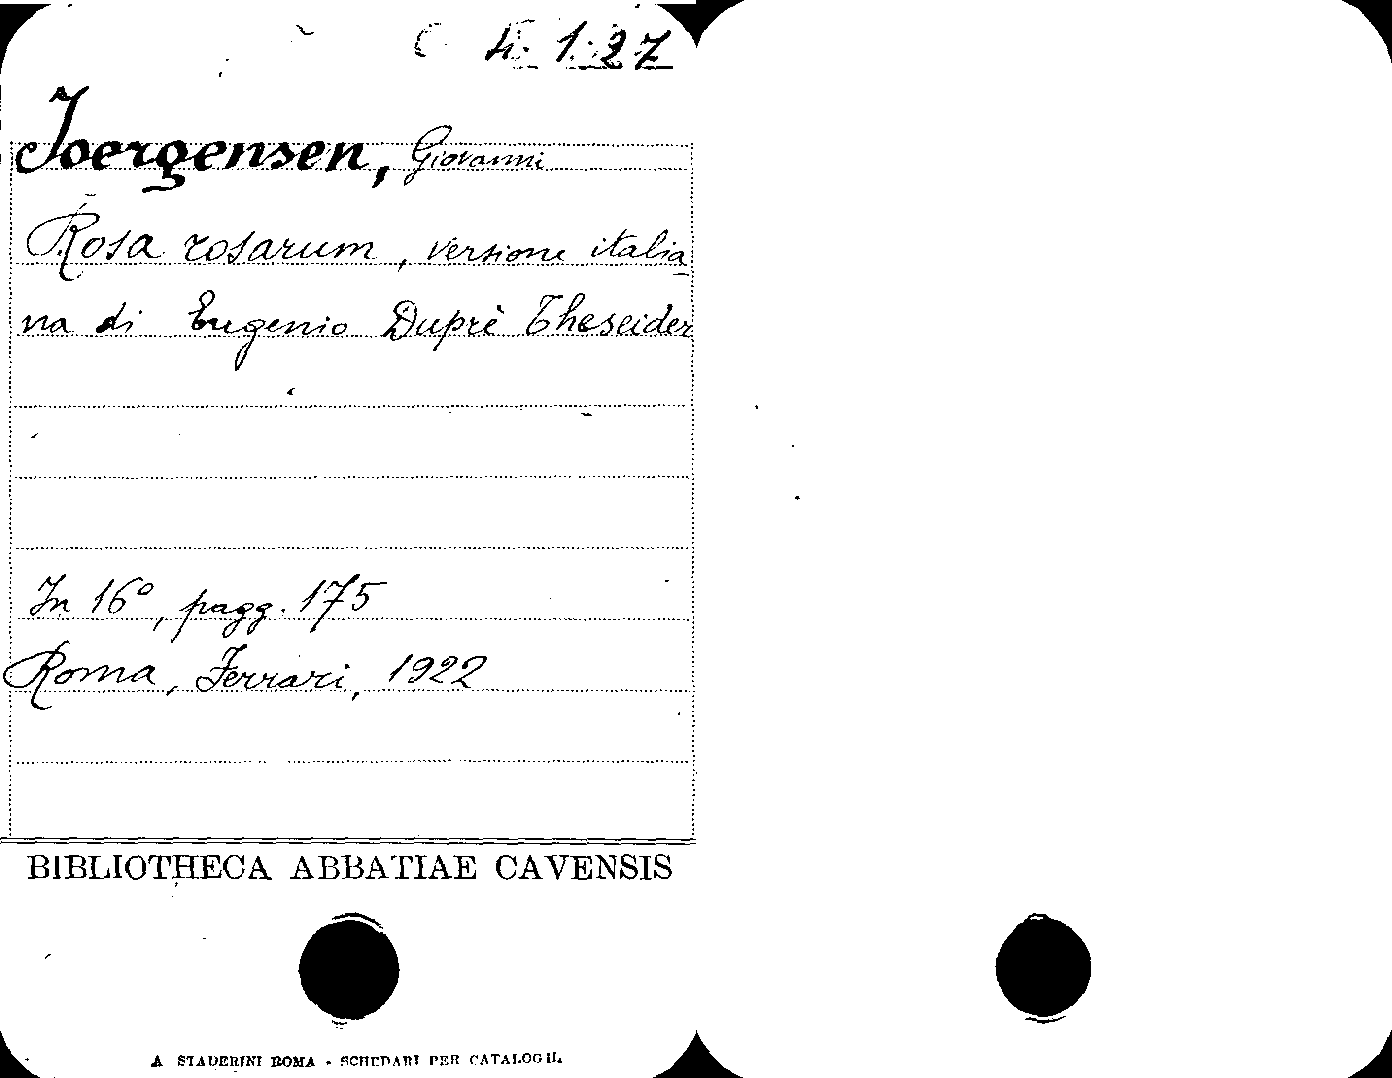 C 4. 1. 27
Joergensen, Giovanni
Rosa rosarum, versione italia
na di Eugenio Duprè Theseider
In 16°, pagg. 175
Roma, Ferrari, 1922
BIBLIOTHECA ABBATIAE CAVENSIS
A STADERINI ROMA - SCHEDARI PER CATALOGHI.